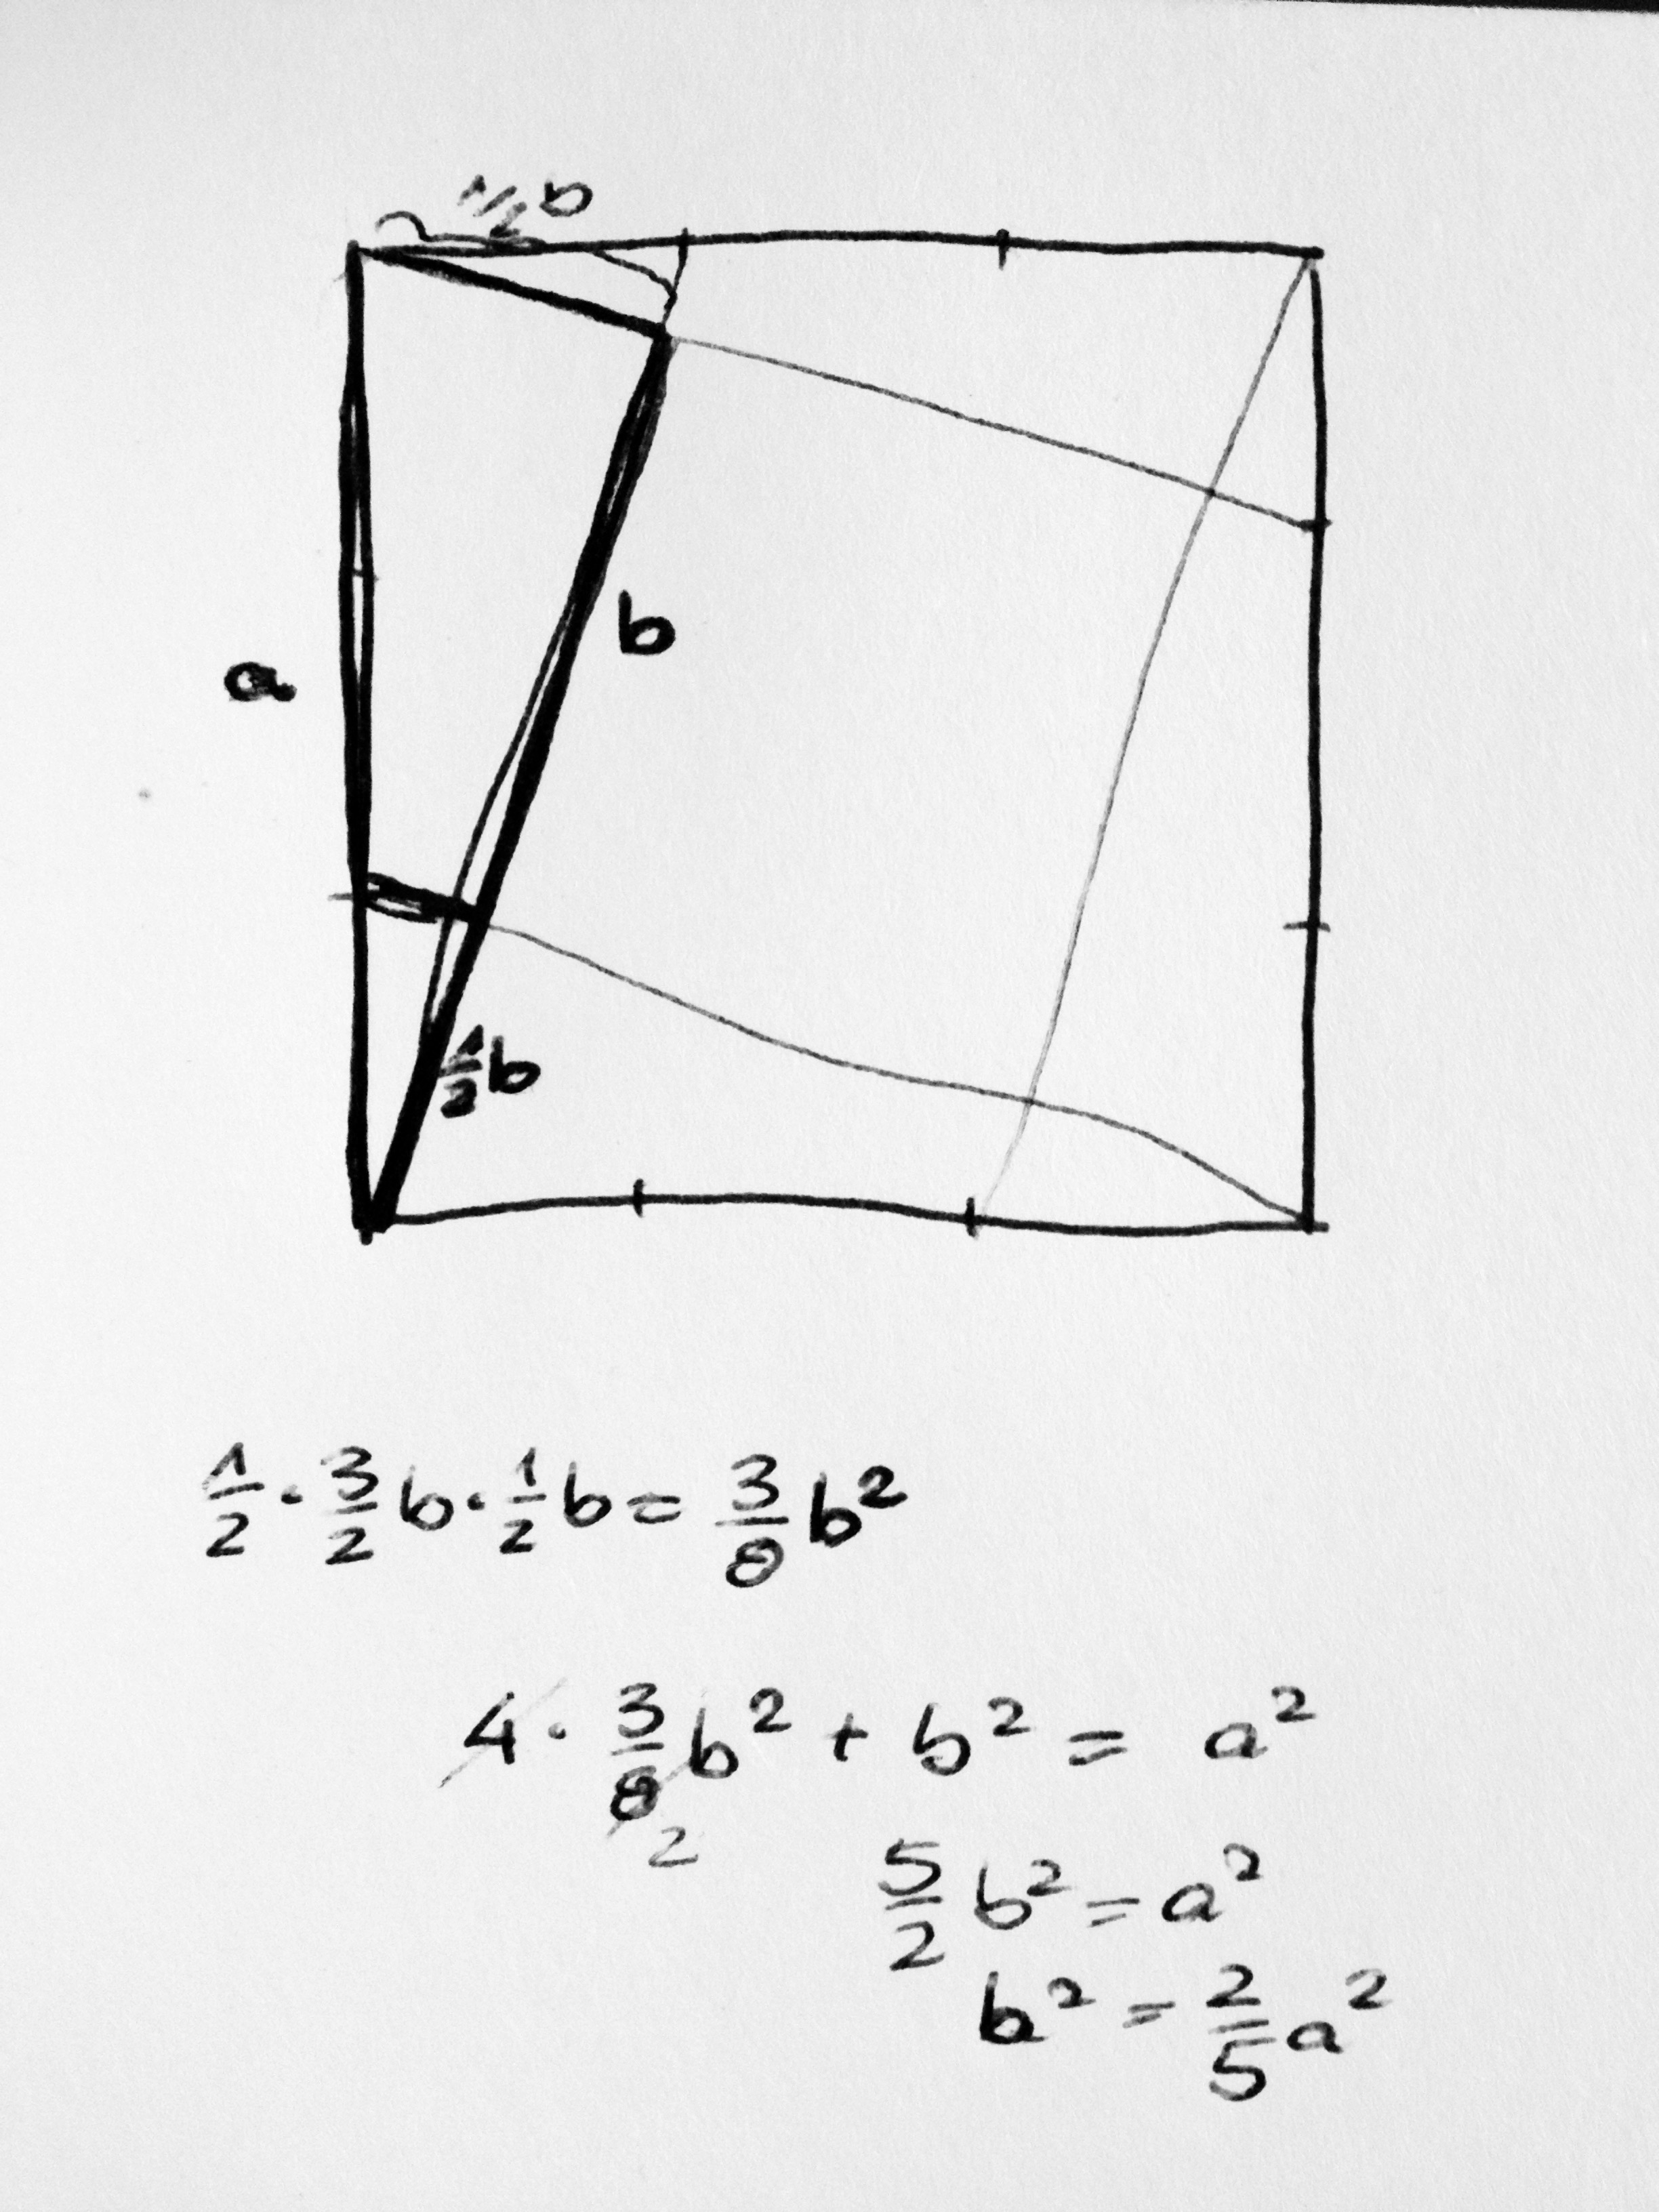 1/2 b
b
a
1/2 b
1/2 · 3/2 b · 1/2 b = 3/8 b²
4 · 3/8 b² + b² = a²
2
5/2 b² = a²
b² = 2/5 a²